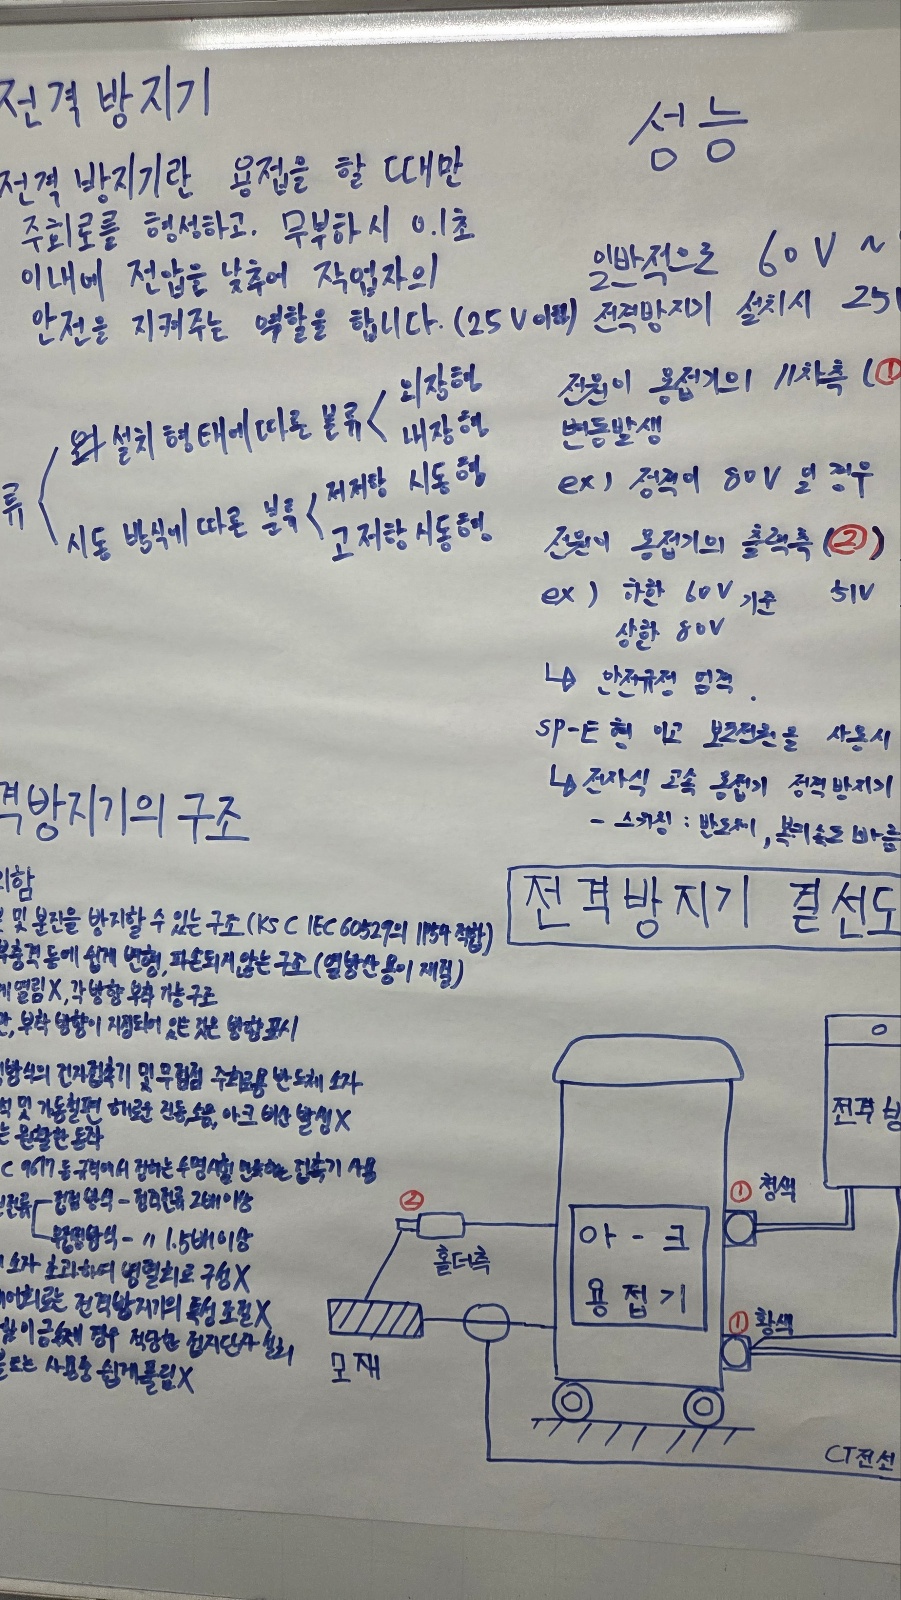 전격 방지기
전격 방지기란 용접을 할 때만
주회로를 형성하고. 무부하시 0.1초
이내에 전압을 낮추어 작업자의
안전을 지켜주는 역할을 합니다. (25V이하)
류
설치 형태에 따른 분류
외장형
내장형
시동 방식에 따른 분류
저저항 시동형
고저항 시동형
격방지기의 구조
함
및 분진을 방지할 수 있는 구조 (KS C IEC 60529의 IP54 적합)
충격 등에 쉽게 변형, 파손되지 않는 구조 (열방산 용이 재질)
열림X, 각 방향 부착 가능 구조
부착 방향이 지정되어 있는 것은 방향 표시
방식의 전자접촉기 및 무접점 주회로용 반도체 소자
및 가동철편 해로운 진동, 소음, 아크 비산 발생X
는 원활한 동작
C 9617 등 규격에서 정하는 수명시험 만족하는 접촉기 사용
접점 방식 - 정격전류 2배 이상
무접점방식 - 〃 1.5배 이상
소자 초과하여 병렬회로 구성X
어회로는 전격방지기의 특성 조절X
함이 금속제 경우 적당한 접지단자 설치
또는 사용중 쉽게 풀림X
성능
일반적으로 60V ~
전격방지기 설치시 25V
전원이 용접기의 1차측 (①
변동발생
ex) 정격이 80V 일 경우
전원이 용접기의 출력측 (②)
ex) 하한 60V 기준 51V
상한 80V
↳ 안전규정 엄격.
SP-E형 이고 보조전원을 사용시
↳ 전자식 고속 용접기 전격방지기
- 스위칭 : 반도체,
전격방지기 결선도
전격 방
① 청색
② 홀더측
아-크
용접기
① 황색
모재
CT전선